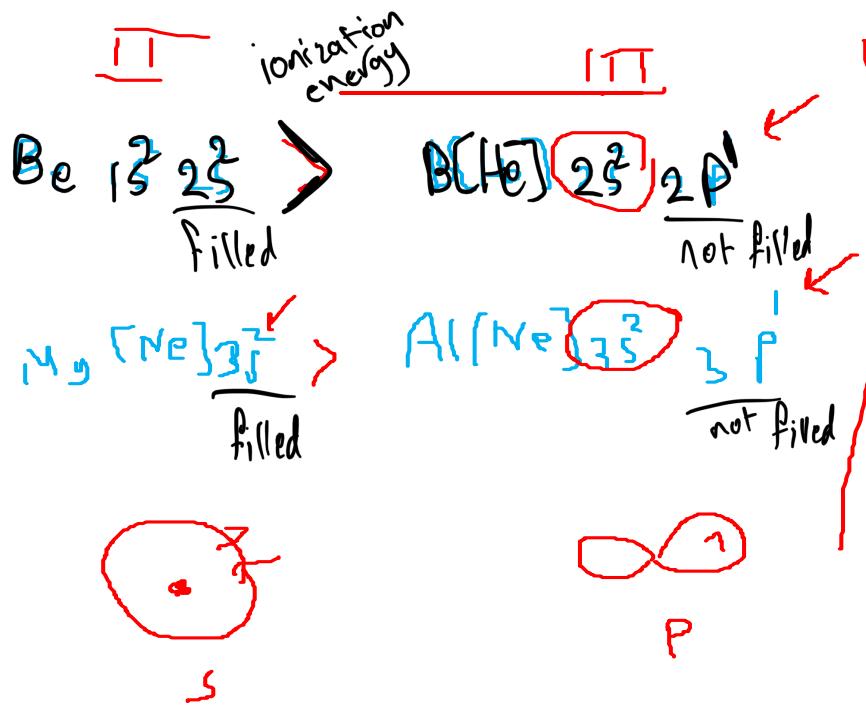 II ionization energy III
Be 1s² 2s² > B[He] 2s² 2p¹
filled not filled
Mg [Ne]3s² > Al[Ne]3s² 3p¹
filled not filled
s p